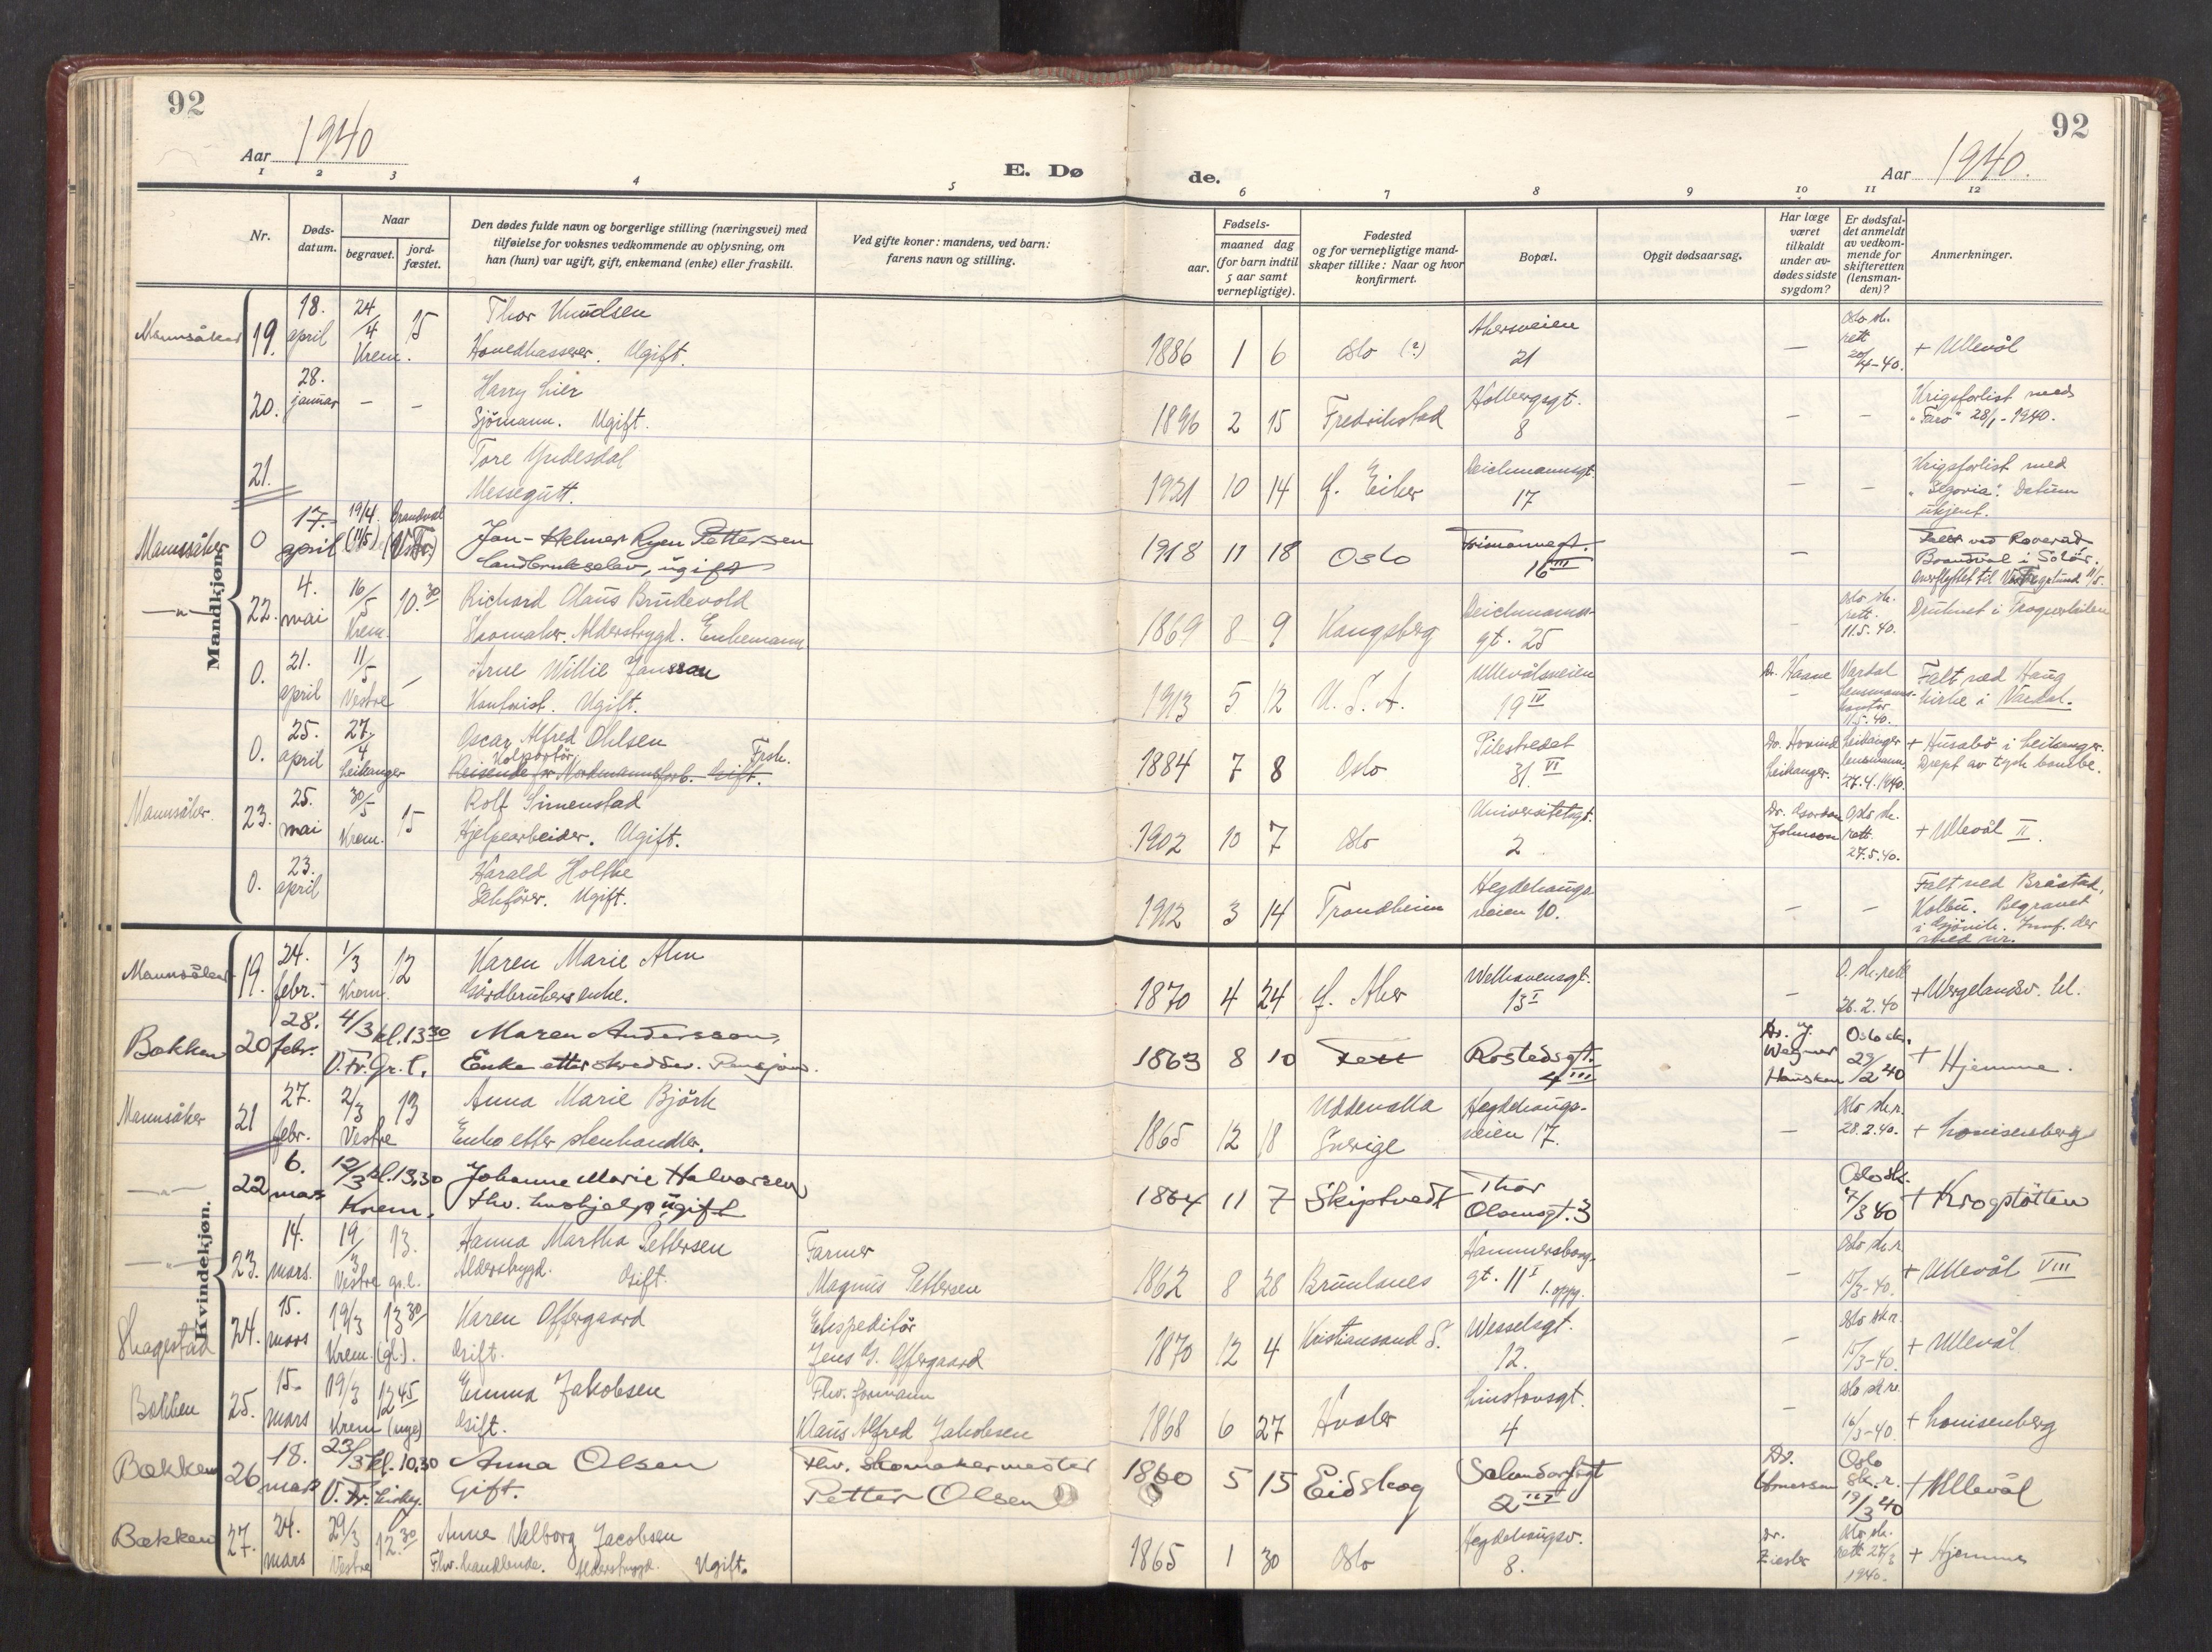 92
92
Aar 1940
E. Døde.
Aar 1940.
1 2 3 4 5 6 7 8 9 10 11 12
Nr.
Døds-datum.
Naar
begravet.
jord-fæstet.
Den dødes fulde navn og borgerlige stilling (næringsvei) med
tilføielse for voksnes vedkommende av oplysning, om
han (hun) var ugift, gift, enkemand (enke) eller fraskilt.
Ved gifte koner: mandens, ved barn:
farens navn og stilling.
Fødsels-
aar.
maaned dag
(for barn indtil
5 aar samt
vernepligtige).
Fødested
og for vernepligtige mand-
skaper tillike: Naar og hvor
konfirmert.
Bopæl.
Opgit dødsaarsag.
Har læge
været
tilkaldt
under av-
dødes sidste
sygdom?
Er dødsfal-
det anmeldt
av vedkom-
mende for
skifteretten
(lensman-
den)?
Anmerkninger.
Mandkjøn.
Mannsåker 19. 18. april 24/4 Krem. 15 Thor Knudsen
Hovedkasserer. Ugift. 1886 1 6 Oslo (?) Akersveien 21 — Oslo sk. rett 20/4-40. + Ullevål
20. 28. januar — — Harry Lier
Sjömann. Ugift. 1896 2 15 Fredrikstad Holbergsgt. 8 — — Krigsforlist med
"Faro" 28/1-1940.
21. Tore Yndesdal
Messegutt. 1921 10 14 f. Eiker Deichmannsgt. 17 — — Krigsforlist med
"Segovia". Datum
ukjent.
Mannsåker 0 17. april 19/4 (11/5) Brandval (Vestre) Jan-Helmer Ryen Pettersen
Landbrukselev, ugift 1918 11 18 Oslo Frimannsgt. 16 III — Falt ved Roverud
Brandval i Solör.
Overflyttet til Vestre gravlund 11/5.
—"— 22. 4. mai 16/5 Krem. 10.30 Richard Olaus Brudevold
Skomaker. Alderstrygd. Enkemann 1869 8 9 Kongsberg Deichmans-gt. 25 — Oslo sk. rett. 11.5.40. Druknet i Frognerkilen
0. 21. april 11/5 Vestre — Arne Willie Jansson
Kontorist. Ugift. 1913 5 12 U.S.A. Ullevålsveien 19 IV Dr. Haave Vardal lensmanns-kontor 11.5.40. Falt ved Haug
kirke i Vardal.
0. 25. april 27/4 Leikanger Oscar Alfred Ohlsen
Kolportör Frsk.
Reisende for Nordmannsforb. Gift. 1884 7 8 Oslo Pilestredet 31 VI Dr. Hovind Leikanger. Leikanger lensmann. 27.4.1940. + Husabö i Leikanger.
Drept av tysk bombe.
Mannsåker. 23. 25. mai 30/5 Krem. 15 Rolf Simenstad
Hjelpearbeider. Ugift. 1902 10 7 Oslo Universitetsgt. 2 Dr. Johnson Oslo sk. rett. 27.5.40. + Ullevål II.
0. 23. april Harald Holthe
Sakförer. Ugift. 1912 3 14 Trondheim Hegdehaugs-veien 10. — — Falt ved Bråstad,
Kolbu. Begravet
i Gjövik. Innf. der
med nr.
Kvindekjøn.
Mannsåker 19. 24. febr. 1/3 Krem. 12 Karen Marie Alm
Gårdbrukers enke. 1870 4 24 f. Aker Welhavensgt. 13 I — O. sk.rett 26.2.40 + Wergelandsv. kl.
Bakken 20 28. febr. 4/3 V.Fr.Gr.l. kl.13.30 Maren Anderssen,
Enke etter skredder. Pensjon. 1863 8 10 Fett Rostedsgt. 4 III Dr. J. Wegner Hansken Oslo sk. 29/2 40 + Hjemme.
Mannsåker 21 27. febr. 2/3 Vestre 13 Anna Marie Björk
Enke etter stenhandler. 1865 12 18 Uddevalla Sverige Hegdehaugs-veien 17. — Oslo sk.r. 28.2.40. + Lovisenberg
—"— 22 6. mars 12/3 Krem. kl.13,30 Johanne Marie Halvorsen
fhv. hushjelp, ugift 1864 11 7 Skiptvedt Thor Olsensgt. 3 Oslo sk. 7/3 40 + Krogstötten
—"— 23. 14. mars. 19/3 Vestre gr.l. 13. Hanna Martha Pettersen
Alderstrygd. Gift. Farmer
Magnus Pettersen 1862 8 28 Brunlanes Hammersborg-gt. 11 I 1.oppg. — Oslo sk.r. 15/3-40. + Ullevål VIII
Skagestad 24. 15. mars 19/3 Krem. (gl.). 13 30 Karen Offergaard
Gift. Ekspeditör
Jens G. Offergaard 1870 12 4 Kristiansand S. Wesselsgt. 12. — Oslo sk.r. 15/3-40. + Ullevål
Bakken 25. 15. mars 19/3 Krem (nye) 12 45 Emma Jakobsen
Gift. Fhv. formann
Klaus Alfred Jakobsen 1868 6 27 Hvaler Linstowsgt. 4 — Oslo sk.re. 16/3-40. + Lovisenberg
Bakken 26 18. mars 23/3 V. Fr. kl. 10.30 Anna Olsen
Gift. Fhv. Skomakermester
Petter Olsen 1860 5 15 Eidskog 2 III Dr. Oslo Sk.r. 19/3 40 + Ullevål
Bakken 27. 24. mars 29/3 Vestre 12.30 Anna Valborg Jacobsen
Fhv. handlende. Alderstrygd. Ugift. 1865 1 30 Oslo Hegdehaugsv. 8. Dr. Ziesler Oslo sk. rett 27/3 1940. + Hjemme